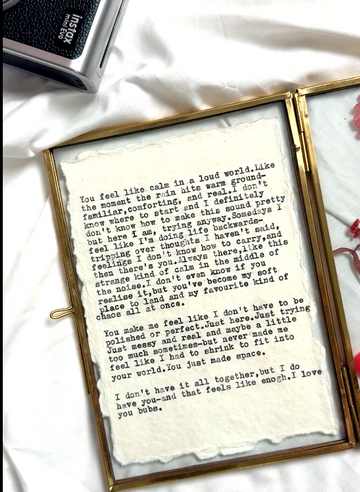 instax
mini Evo
You feel like calm in a loud world.Like
the moment the rain hits warm ground-
familiar,comforting, and real.I don't
know where to start and I definitely
don't know how to make this sound pretty
but here I am, trying anyway.Somedays I
feel like I'm doing life backwards-
tripping over thoughts I haven't said,
feelings I don't know how to carry,and
then there's you.Always there,like this
strange kind of calm in the middle of
the noise.I don't even know if you
realise it,but you've become my soft
place to land and my favourite kind of
chaos all at once.
You make me feel like I don't have to be
polished or perfect.Just here.Just trying
Just messy and real and maybe a little
too much sometimes-but never made me
feel like I had to shrink to fit into
your world.You just made space.
I don't have it all together,but I do
have you-and that feels like enogh.I love
you bubs.